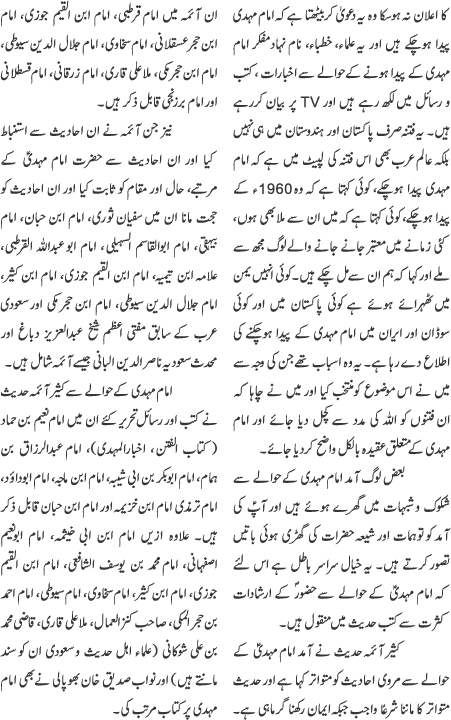 کا اعلان نہ ہوسکا وہ یہ دعویٰ کر بیٹھتا ہے کہ امام مہدی
پیدا ہوچکے ہیں اور یہ علماء، خطباء، نام نہاد مفکر امام
مہدی کے پیدا ہونے کے حوالے سے اخبارات، کتب
و رسائل میں لکھ رہے ہیں اور TV پر بیان کررہے
ہیں۔ یہ فتنہ صرف پاکستان اور ہندوستان میں ہی نہیں
بلکہ عالم عرب بھی اس فتنہ کی لپیٹ میں ہے کہ امام
مہدی پیدا ہوچکے، کوئی کہتا ہے کہ وہ 1960ء کے
پیدا ہوچکے، کوئی کہتا ہے کہ میں ان سے ملا بھی ہوں،
کئی زمانے میں معتبر جانے جانے والے لوگ مجھ سے
ملے اور کہا کہ ہم ان سے مل چکے ہیں۔ کوئی انہیں یمن
میں ٹھہرائے ہوئے ہے کوئی پاکستان میں اور کوئی
سوڈان اور ایران میں امام مہدی کے پیدا ہوچکنے کی
اطلاع دے رہا ہے۔ یہ وہ اسباب تھے جن کی وجہ سے
میں نے اس موضوع کو منتخب کیا اور میں نے چاہا کہ
ان فتنوں کو اللہ کی مدد سے کچل دیا جائے اور امام
مہدی کے متعلق عقیدہ بالکل واضح کردیا جائے۔
بعض لوگ آمد امام مہدی کے حوالے سے
شکوک و شبہات میں گھرے ہوئے ہیں اور آپؑ کی
آمد کو توہمات اور شیعہ حضرات کی گھڑی ہوئی باتیں
تصور کرتے ہیں۔ یہ خیال سراسر باطل ہے اس لئے
کہ امام مہدیؑ کے حوالے سے حضورؐ کے ارشادات
کثرت سے کتب حدیث میں منقول ہیں۔
کثیر آئمہ حدیث نے آمد امام مہدیؑ کے
حوالے سے مروی احادیث کو متواتر کہا ہے اور حدیث
متواتر کا ماننا شرعاً واجب جبکہ ایمان رکھنا گمراہی ہے۔
ان آئمہ میں امام قرطبی، امام ابن القیم جوزی، امام
ابن حجر عسقلانی، امام سخاوی، امام جلال الدین سیوطی،
امام ابن حجر مکی، ملا علی قاری، امام زرقانی، امام قسطلانی
اور امام برزنجی قابل ذکر ہیں۔
نیز جن آئمہ نے ان احادیث سے استنباط
کیا اور ان احادیث سے حضرت امام مہدیؑ کے
مرتبے، حال اور مقام کو ثابت کیا اور ان احادیث کو
حجت مانا ان میں سفیان ثوری، امام ابن حبان، امام
بیہقی، امام ابوالقاسم السہیلی، امام ابو عبداللہ القرطبی،
علامہ ابن تیمیہ، امام ابن القیم جوزی، امام ابن کثیر،
امام جلال الدین سیوطی، امام ابن حجر مکی اور سعودی
عرب کے سابق مفتی اعظم شیخ عبدالعزیز دباغ اور
محدث سعودیہ ناصر الدین البانی جیسے آئمہ شامل ہیں۔
امام مہدی کے حوالے سے کثیر آئمہ حدیث
نے کتب اور رسائل تحریر کئے ان میں امام نعیم بن حماد
(کتاب الفتن، اخبار المہدی)، امام عبدالرزاق بن
ہمام، امام ابوبکر بن ابی شیبہ، امام ابن ماجہ، امام ابوداؤد،
امام ترمذی امام ابن خزیمہ اور امام ابن حبان قابل ذکر
ہیں۔ علاوہ ازیں امام ابن ابی خیثمہ، امام ابونعیم
اصفہانی، امام محمد بن یوسف الشافعی، امام ابن القیم
جوزی، امام ابن کثیر، امام سخاوی، امام سیوطی، امام احمد
بن حجر المکی، صاحب کنزالعمال، ملا علی قاری، قاضی محمد
بن علی شوکانی (علماء اہل حدیث و سعودی ان کو سند
مانتے ہیں) اور نواب صدیق خان بھوپالی نے بھی امام
مہدی پر کتاب مرتب کی۔